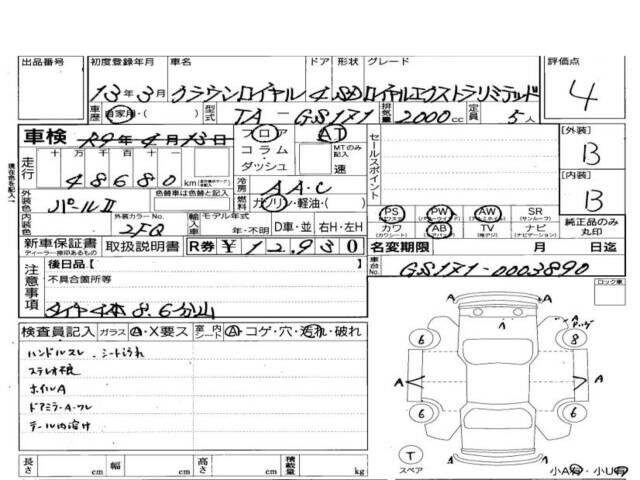 出品番号 初度登録年月 車名 ドア 形状 グレード 評価点
13年3月 クラウンロイヤル 4 SD ロイヤルエクストラリミテッド 4
車歴 自家用・( ) 型式 TA-GS171 排気量 2000cc 定員 5人
車検 R9年4月13日 フロア AT セールスポイント [外装] B
コラム MTのみ記入
ダッシュ 速
走行 十万千百十 48680 km
冷房 AA・C [内装] B
外装色 パールⅡ 色替車は色替と記入 燃料 ガソリン・軽油( )
PS PW AW SR(サンルーフ) 純正品のみ丸印
内装色 外装カラーNo. 2FQ 輸入車 モデル年式 年・不明 D車・並 右H・左H
カワ(カワシート) AB TV ナビ(ナビゲーション)
新車保証書 取扱説明書 R券 ¥12,930 名変期限 月 日迄
ディーラー捺印あるもの
注意事項 後日品[ ] 車台No. GS171-0003890
不具合箇所等 ロック車
タイヤ4本8.6分山
検査員記入 ガラス A・X要ス 室内シート A・コゲ・穴・汚れ・破れ
ハンドルスレ シート汚れ
ステレオ不良
ホイルA
ドアミラーA・ワレ
テール内溶け
A A
6 8
A A
6 6
T スペア
小A有・小U有
長さ cm 幅 cm 高さ cm 積載量 kg
現在色を記入